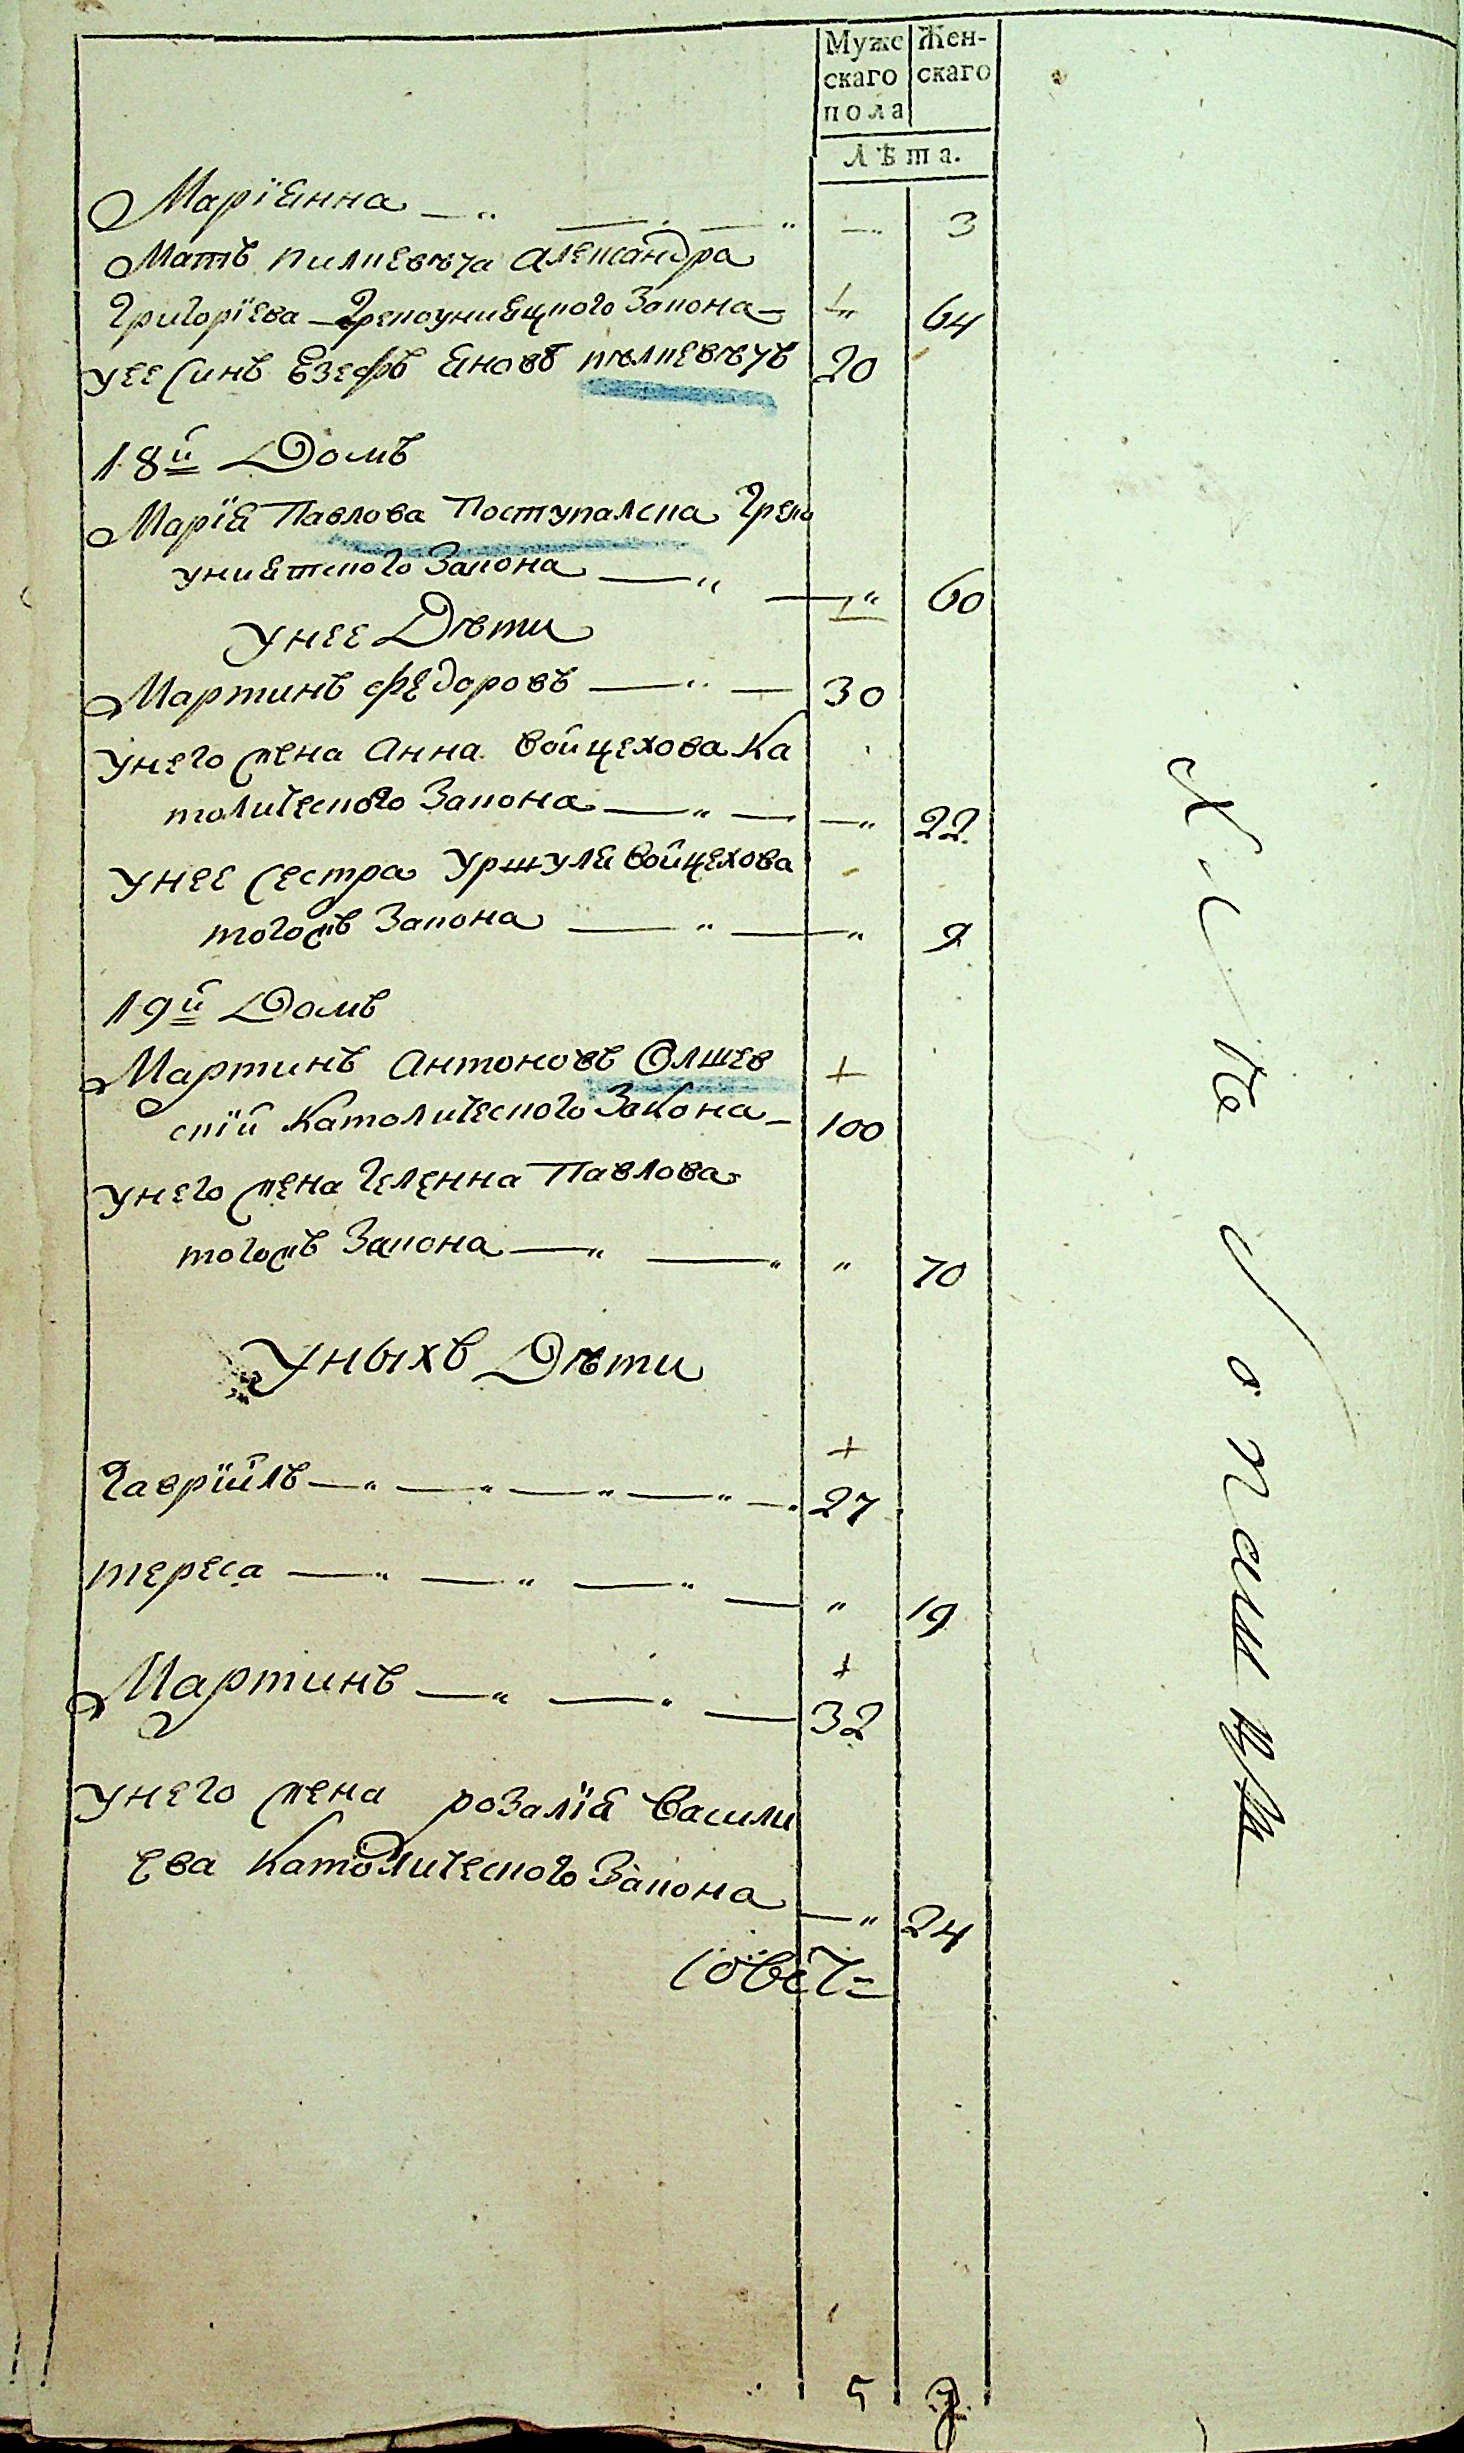 Мужс Жен-
скаго скаго
пола
Лѣта.
Марїянна — „ — „ — „ — 3
Мать Пилкевича Александра
Григорїева Грекоунияцкого Закона — „ 64
уее Синъ Езефъ Яновъ Пѣлкевѣчъ 20
18й Домъ
Марїя Павлова Поступалска Греко
униятского Закона — „ — „ 60
Унее Дѣти
Мартинъ Федоровъ — „ — 30
Унего жена Анна Войцехова Ка
толического Закона — „ — „ 22
Унее сестра Уршуля Войцехова
тогожъ Закона — „ — „ 9
19й Домъ
Мартинъ Антоновъ Олшев +
скїй Католического Закона — 100
Унего жена Геленна Павлова
тогожъ Закона — „ — „ „ 70
Уныхъ Дѣти
+
Гаврїилъ — „ — „ — „ — „ — „ 27
Тереса — „ — „ — „ — „ 19
+
Мартинъ — „ — „ — 32
Унего жена розалїя Васили
ева Католического Закона — „ 24
5